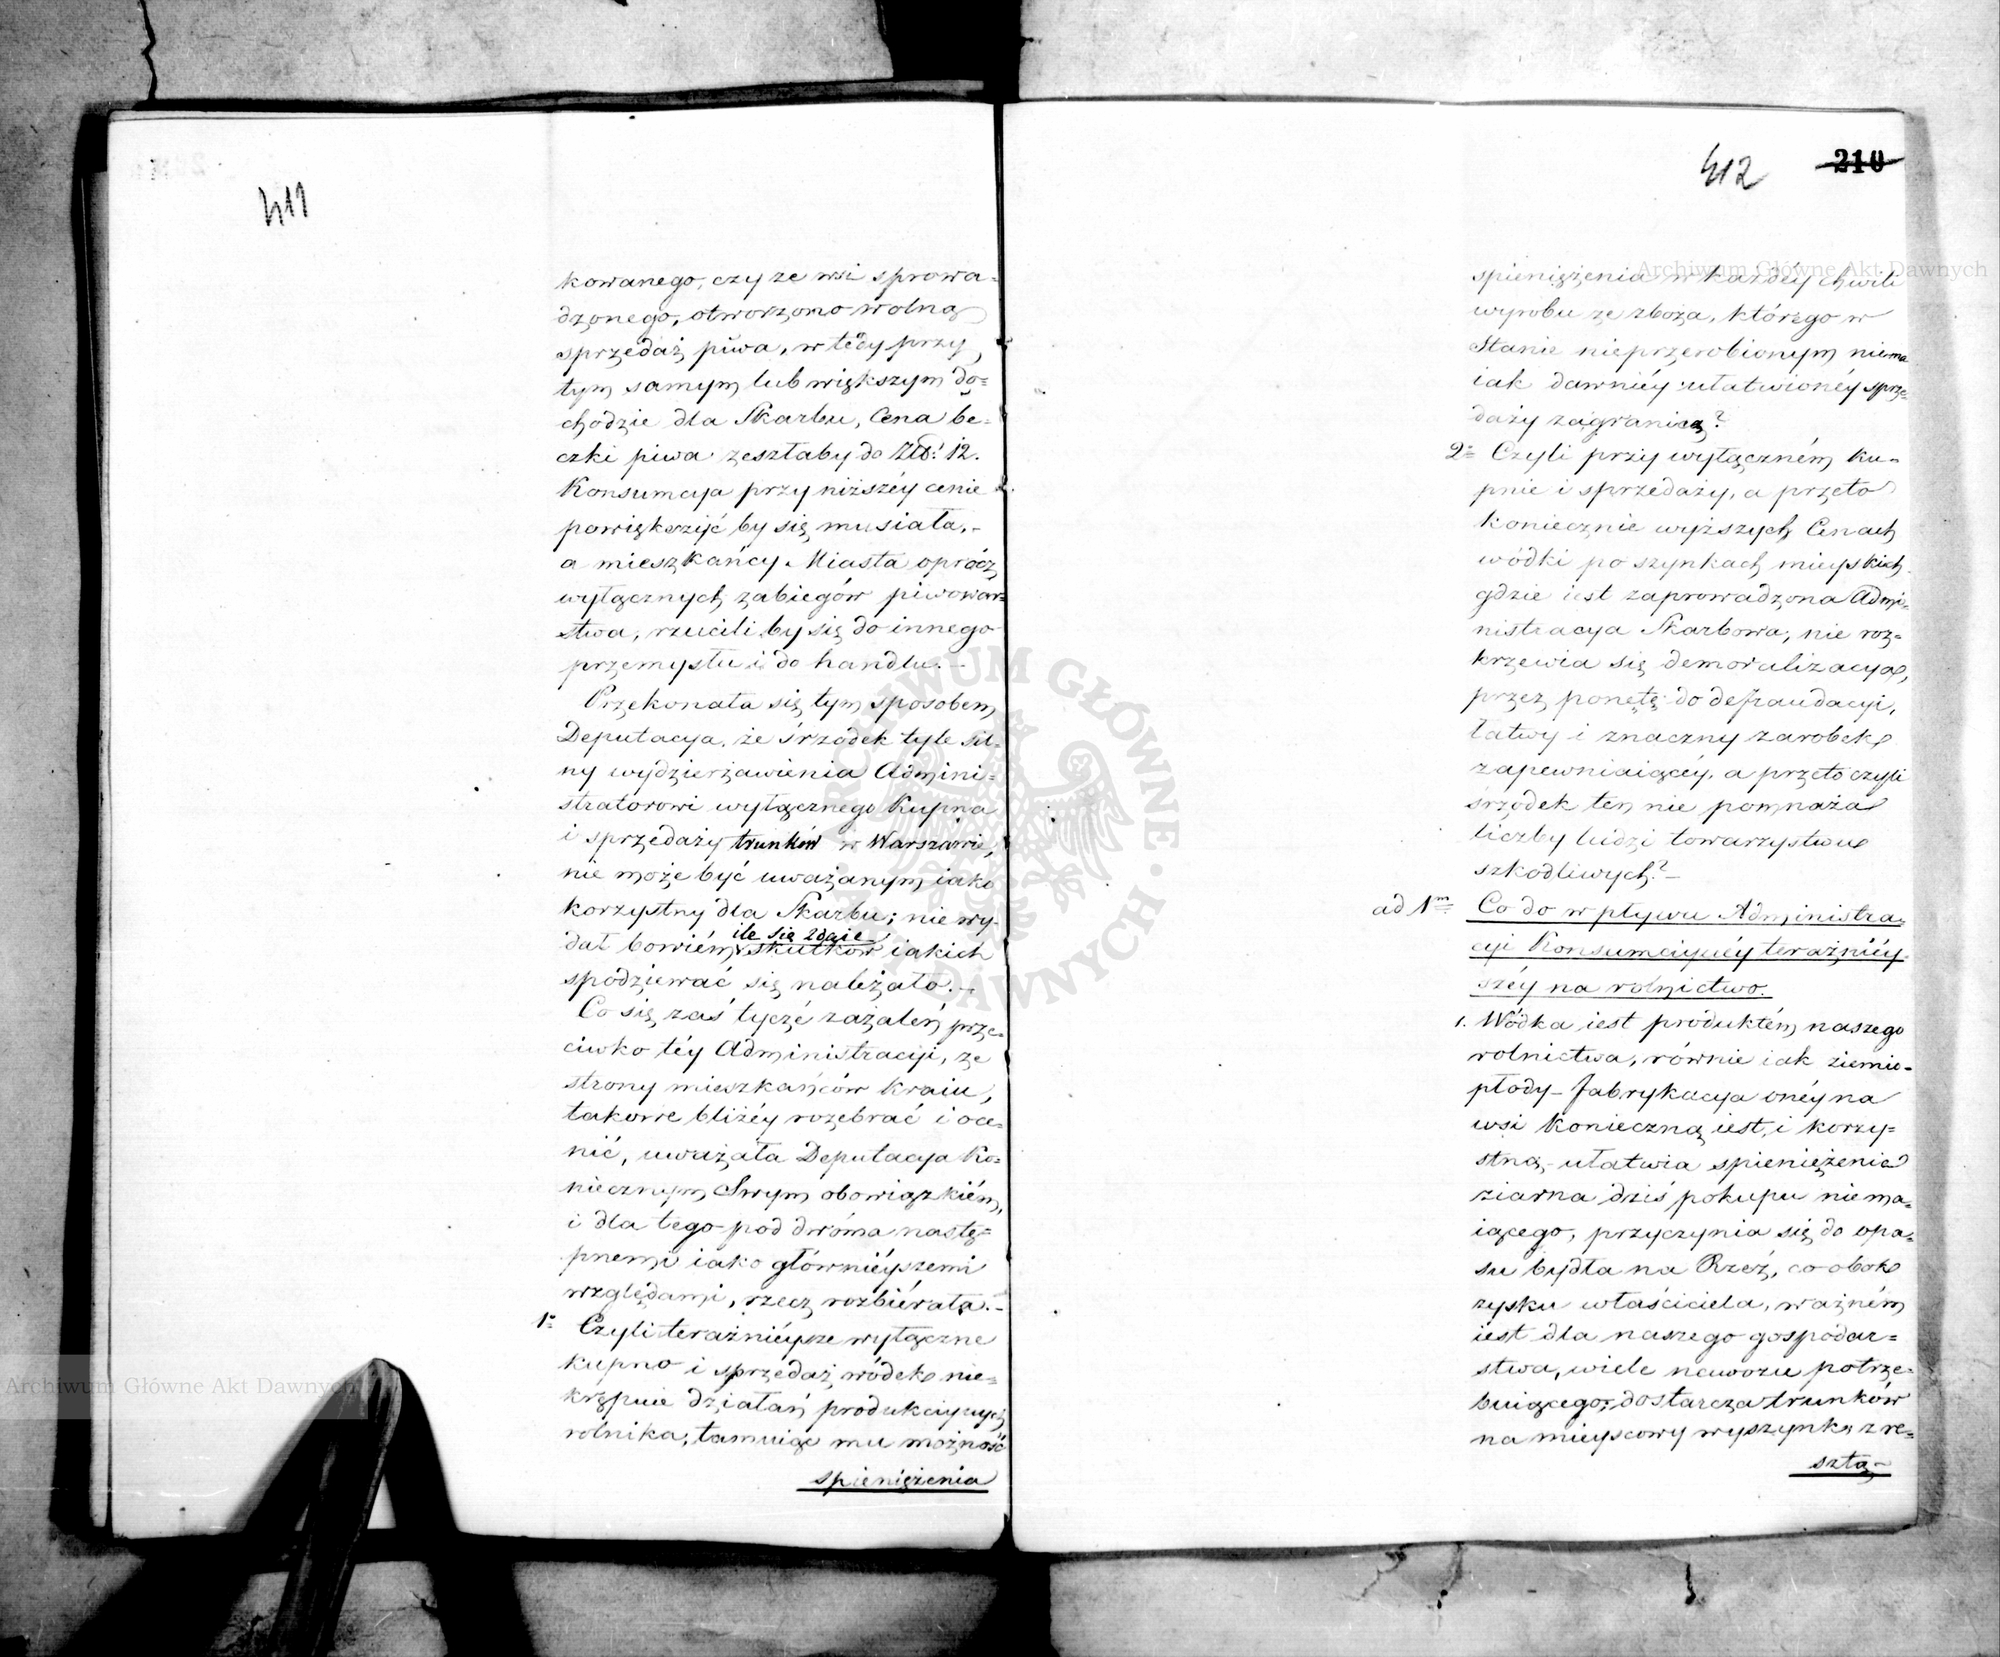 411
kowanego, czy ze wsi sprowa-
dzonego, otworzono wolną
sprzedaż piwa, wtedy przy
tym samym lub większym do-
chodzie dla Skarbu, Cena be-
czki piwa zeszłaby do Złt: 12.
Konsumcya przy niższéy cenie
powiększyć by się musiała,-
a mieszkańcy Miasta oprócz
wyłącznych zabiegów piwowar-
stwa, rzucili by się do innego
przemysłu i do handlu.-
Przekonała się tym sposobem
Deputacya, że śrzodek tyle sil-
ny wydzierżawienia Admini-
stratorowi wyłącznego Kupna
i sprzedaży trunków w Warszawie,
nie może być uważanym iako
korzystny dla Skarbu; nie wy-
ile się zdaie
dał bowiém skutków iakich
spodziewać się należało.-
Co się zaś tycze zażaleń prze-
ciwko téy Administracyi, ze
strony mieszkańców Kraiu,
takowe bliżéy rozebrać i oce-
nić, uważała Deputacya Ko-
niecznym Swym obowiązkiém,
i dla tego pod dwóma nastę-
pnemi iako główniéyszemi
względami, rzecz rozbiérała.-
1° Czyli teraźniéysze wyłączne
kupno i sprzedaż wódek nie-
krępuie działań produkcyynych
rolnika, tamuiąc mu możność
spieniężenia
412
210
spieniężenia w każdéy chwili
wyrobu ze zboża, którego w
Stanie nieprzerobionym niema
iak dawniéy ułatwionéy sprze-
daży zagranicą?
2° Czyli przy wyłączném ku-
pnie i sprzedaży, a przeto
koniecznie wyższych Cenach
wódki po szynkach mieyskich
gdzie iest zaprowadzona Admi-
nistracya Skarbowa, nie roz-
krzewia się demoralizacya,
przez ponętę do defraudacyi,
łatwy i znaczny zarobek
zapewniaiącéy, a przeto czyli
śrzodek ten nie pomnaża
liczby ludzi towarzystwu
szkodliwych?-
ad 1m Co do wpływu Administra-
cyi Konsumcyynéy teraźniéy-
széy na rolnictwo.
1. Wódka iest produktém naszego
rolnictwa, równie iak ziemio-
płody- fabrykacya onéy na
wsi Konieczną iest, i korzy-
stną,- ułatwia spieniężenie
ziarna dziś pokupu niema-
iącego, przyczynia się do opa-
su bydła na Rzeź, co obok
zysku właściciela, ważném
iest dla naszego gospodar-
stwa, wiele nawozu potrze-
buiącego; dostarcza trunków
na mieyscowy wyszynk, z re-
sztą-
Archiwum Główne Akt Dawnych
Archiwum Główne Akt Dawnych
ARCHIWUM GŁÓWNE AKT DAWNYCH